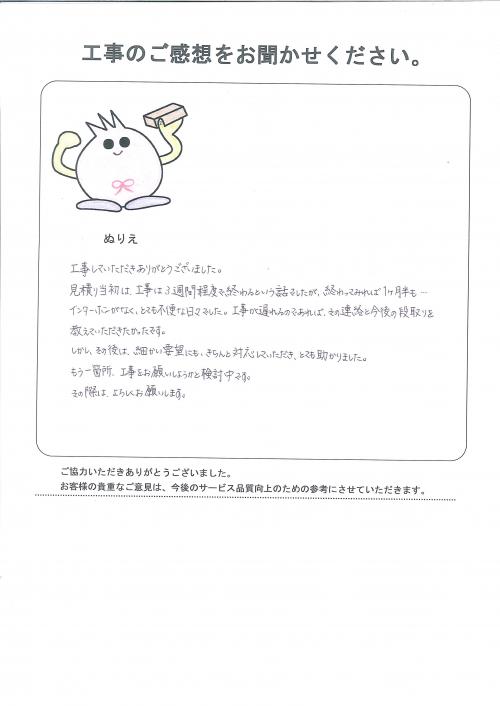 工事のご感想をお聞かせください。
ぬりえ
工事していただきありがとうございました。
見積り当初は、工事は3週間程度で終わるという話でしたが、終わってみれば1ヶ月半も…
インターホンがなく、とても不便な日々でした。工事が遅れるのであれば、その連絡と今後の段取りを
教えていただきたかったです。
しかし、その後は、細かい要望にも、きちんと対応していただき、とても助かりました。
もう一箇所、工事をお願いしようかと検討中です。
その際は、よろしくお願いします。
ご協力いただきありがとうございました。
お客様の貴重なご意見は、今後のサービス品質向上のための参考にさせていただきます。